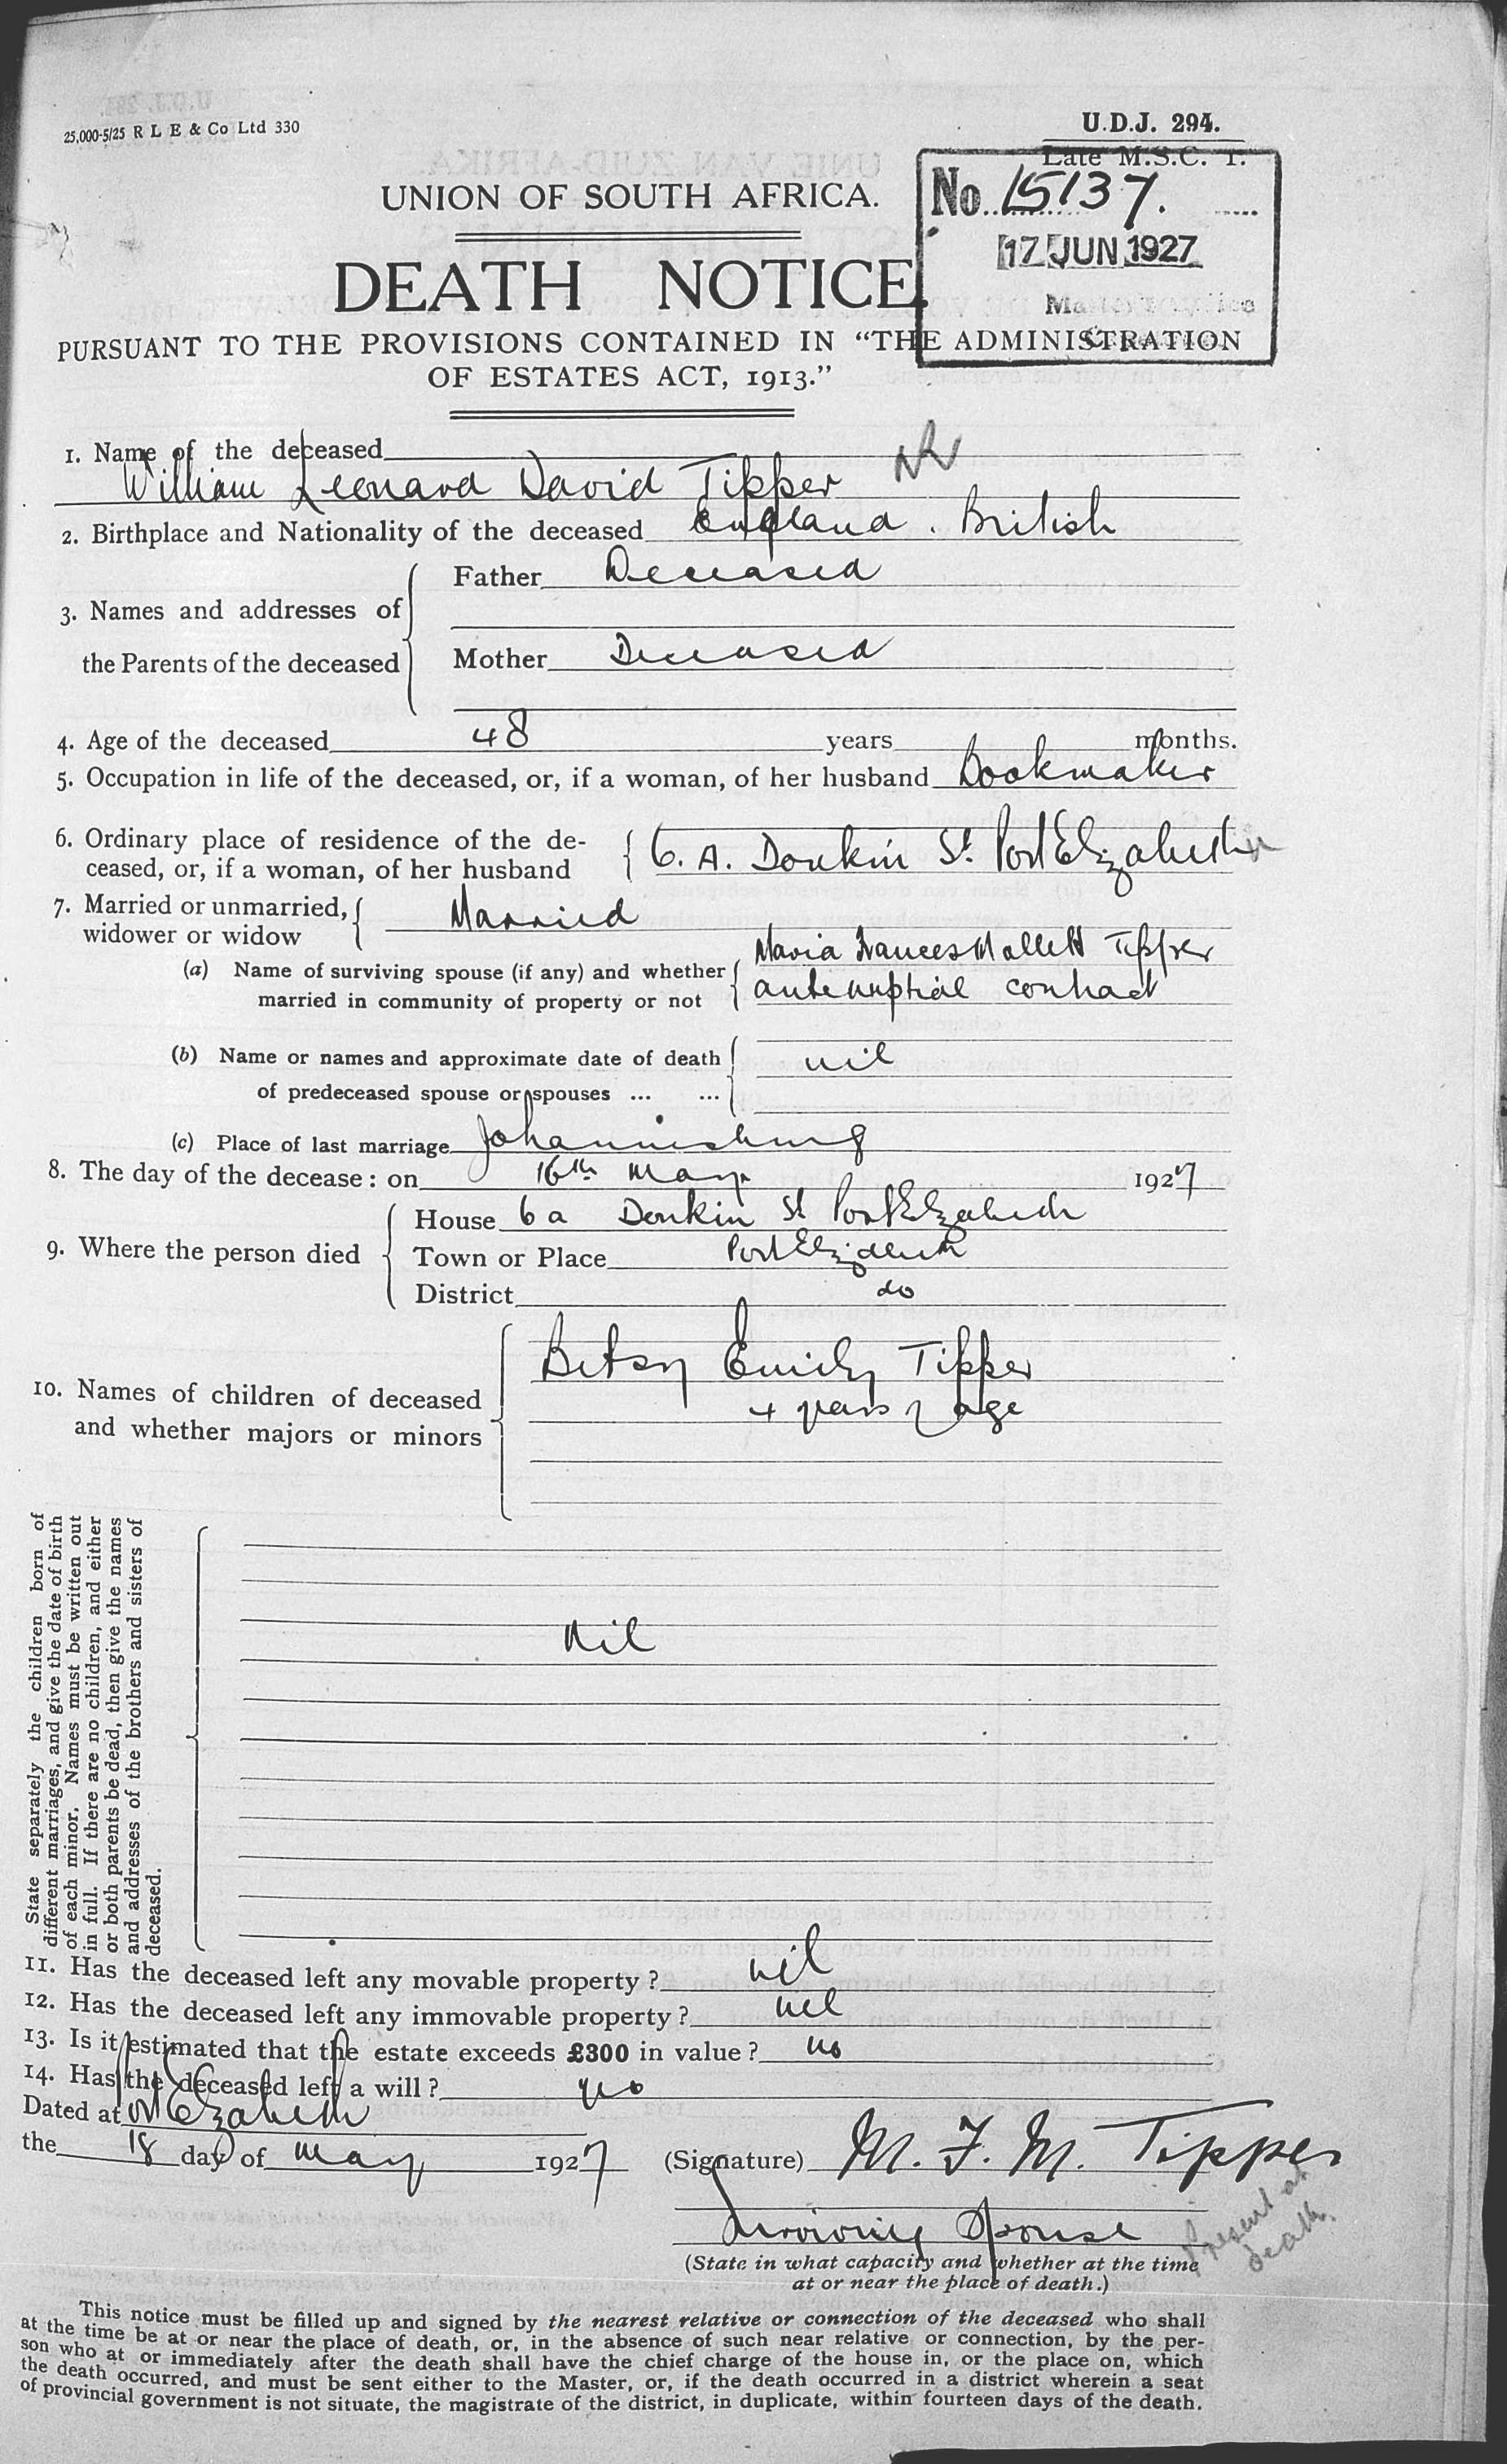 25,000-5/25 R L E & Co Ltd 330
U.D.J. 294.
Late M.S.C. 1.
No. 15137.
17 JUN 1927
UNION OF SOUTH AFRICA.
DEATH NOTICE
PURSUANT TO THE PROVISIONS CONTAINED IN “THE ADMINISTRATION
OF ESTATES ACT, 1913.”
1. Name of the deceased
William Leonard David Tipper
2. Birthplace and Nationality of the deceased England. British
3. Names and addresses of
the Parents of the deceased
Father Deceased
Mother Deceased
4. Age of the deceased 48 years months.
5. Occupation in life of the deceased, or, if a woman, of her husband Bookmaker
6. Ordinary place of residence of the de-
ceased, or, if a woman, of her husband
6. A. Donkin St. Port Elizabeth
7. Married or unmarried,
widower or widow
Married
(a) Name of surviving spouse (if any) and whether
married in community of property or not
Maria Frances Mallett Tipper
antenuptial contract
(b) Name or names and approximate date of death
of predeceased spouse or spouses ... ...
nil
(c) Place of last marriage Johannesburg
8. The day of the decease : on 16th May 1927
9. Where the person died
House 6a Donkin St Port Elizabeth
Town or Place Port Elizabeth
District do
10. Names of children of deceased
and whether majors or minors
Betsy Emily Tipper
4 years of age
State separately the children born of
different marriages, and give the date of birth
of each minor. Names must be written out
in full. If there are no children, and either
or both parents be dead, then give the names
and addresses of the brothers and sisters of
deceased.
Nil
11. Has the deceased left any movable property ? nil
12. Has the deceased left any immovable property ? nil
13. Is it estimated that the estate exceeds £300 in value ? no
14. Has the deceased left a will ? yes
Dated at Pt Elizabeth
the 18 day of May 1927
(Signature) M. F. M. Tipper
Surviving Spouse
Present at
death.
(State in what capacity and whether at the time
at or near the place of death.)
This notice must be filled up and signed by the nearest relative or connection of the deceased who shall
at the time be at or near the place of death, or, in the absence of such near relative or connection, by the per-
son who at or immediately after the death shall have the chief charge of the house in, or the place on, which
the death occurred, and must be sent either to the Master, or, if the death occurred in a district wherein a seat
of provincial government is not situate, the magistrate of the district, in duplicate, within fourteen days of the death.